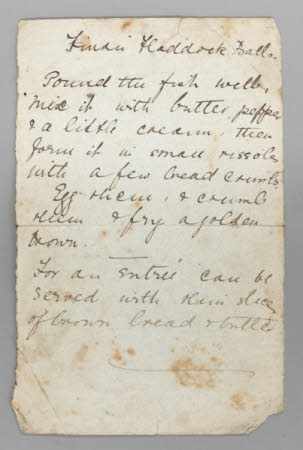 Finan Haddock Balls.
Pound the fish well,
mix it with butter pepper
& a little cream, then
form it in small rissoles
with a few bread crumbs
Egg them, & crumb
them & fry a golden
brown.
For an Entrée can be
served with thin slices
of brown bread & butter